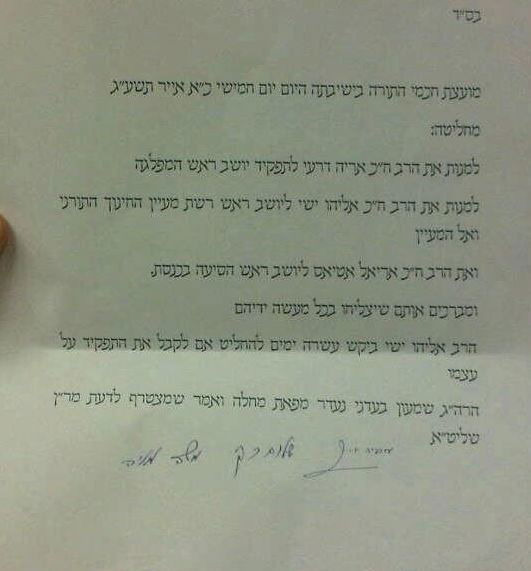 בס"ד
מועצת חכמי התורה בישיבתה היום יום חמישי כ"א אייר תשע"ג
מחליטה:
למנות את הרב ח"כ אריה דרעי לתפקיד יושב ראש המפלגה
למנות את הרב ח"כ אליהו ישי ליושב ראש רשת מעיין החינוך התורני
ואל המעיין
ואת הרב ח"כ אריאל אטיאס ליושב ראש הסיעה בכנסת.
ומברכים אותם שיצליחו בכל מעשה ידיהם
הרב אליהו ישי ביקש עשרה ימים להחליט אם לקבל את התפקיד על
עצמו
הרה"ג שמעון בעדני נעדר מפאת מחלה ואמר שמצטרף לדעת מר"ן
שליט"א
שלום כהן